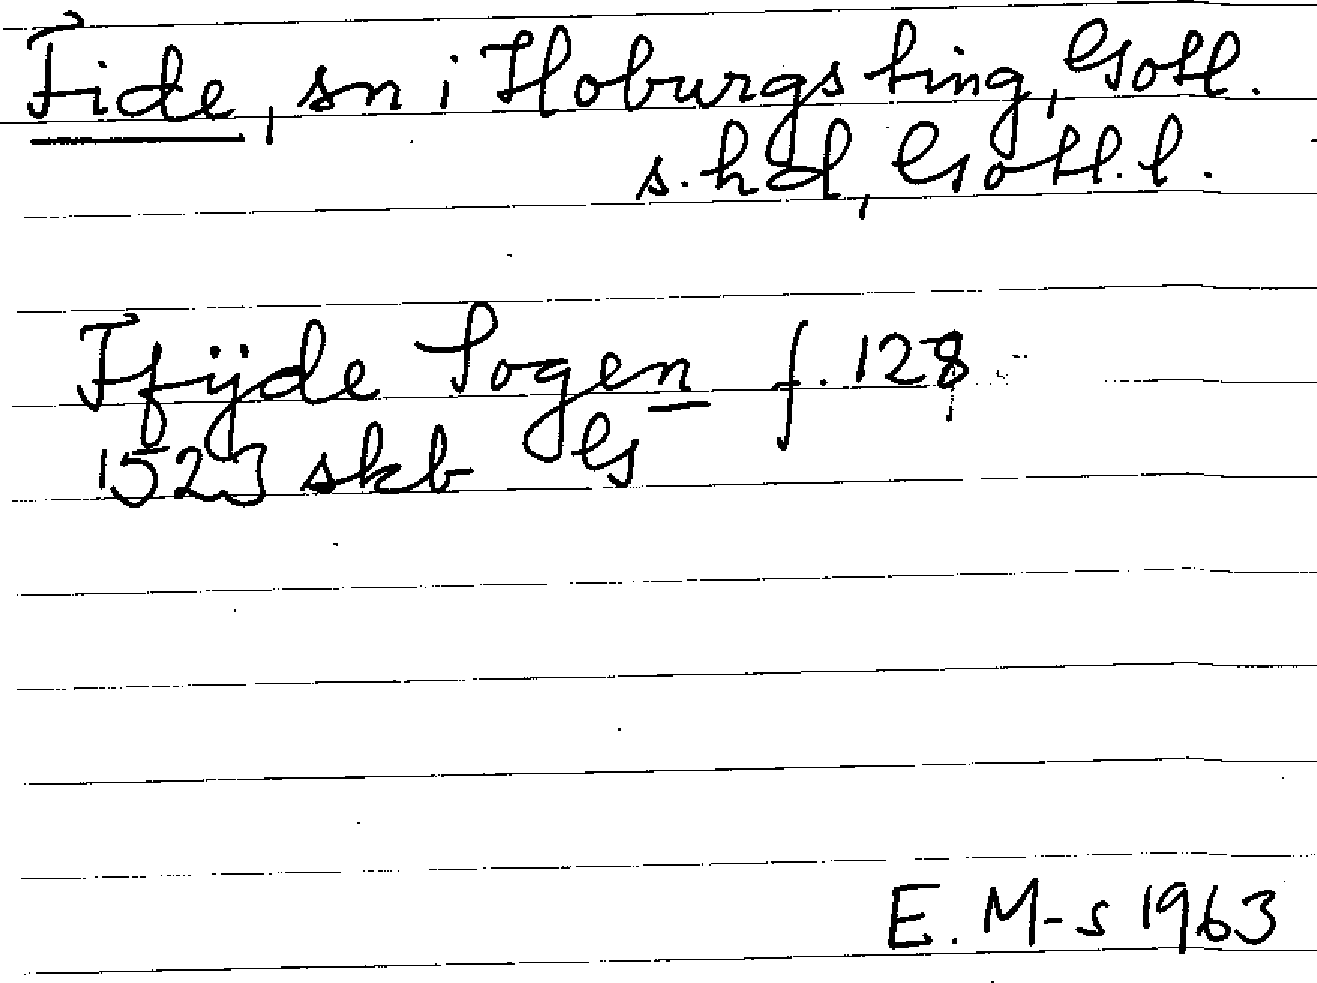 Fide, sn i Hoburgs ting, Gotl.
s. hd, Gotl. l.
Ffÿde Sogen f. 128
1523 skb G
E. M-s 1963